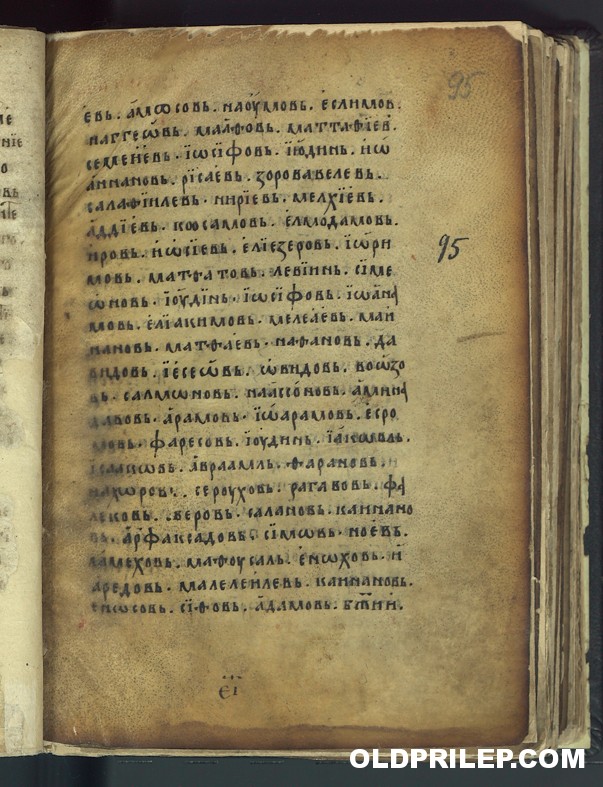 95
евь. амѡсовь. наоумовь. еслимов.
наггеѡвь. маѳовь. маттаѳіев.
семеіевь. іѡсіфовь. іюдинь. иѡ
аннановь. рісаевь. зоровавелевь.
салафіилевь. ниріевь. мелхіевь.
аддіевь. коосамовь. елмодамовь.
ировь. иѡсіевь. еліезеровь. іѡри
мовь. матѳатовь. левіинь. сіме
ѡновь. іоудінь. іѡсіфовь. іѡана
мовь. еліакимовь. мелеаевь. маи
нановь. матѳаевь. наѳановь. да
видовь. іесеѡвь. ѡвидовь. воѡзо
вь. салмѡновь. наассоновь. амина
давовь. арамовь. іѡарамовь. есро
мовь. фаресовь. іоудинь. іакѡвль.
ісаакѡвь. авраамль. ѳарановь.
нахѡровь. сероуховь. рагавовь. фа
лековь. .веровь. салановь. каинано
вь. арфаксадовь. сімѡвь. ноевь.
ламеховь. маѳоусаль. енѡховь. и
аредовь. малелеилевь. каинановь.
енѡсовь. сіѳовь. адамовь. бжии.
95
еі
OLDPRILEP.COM